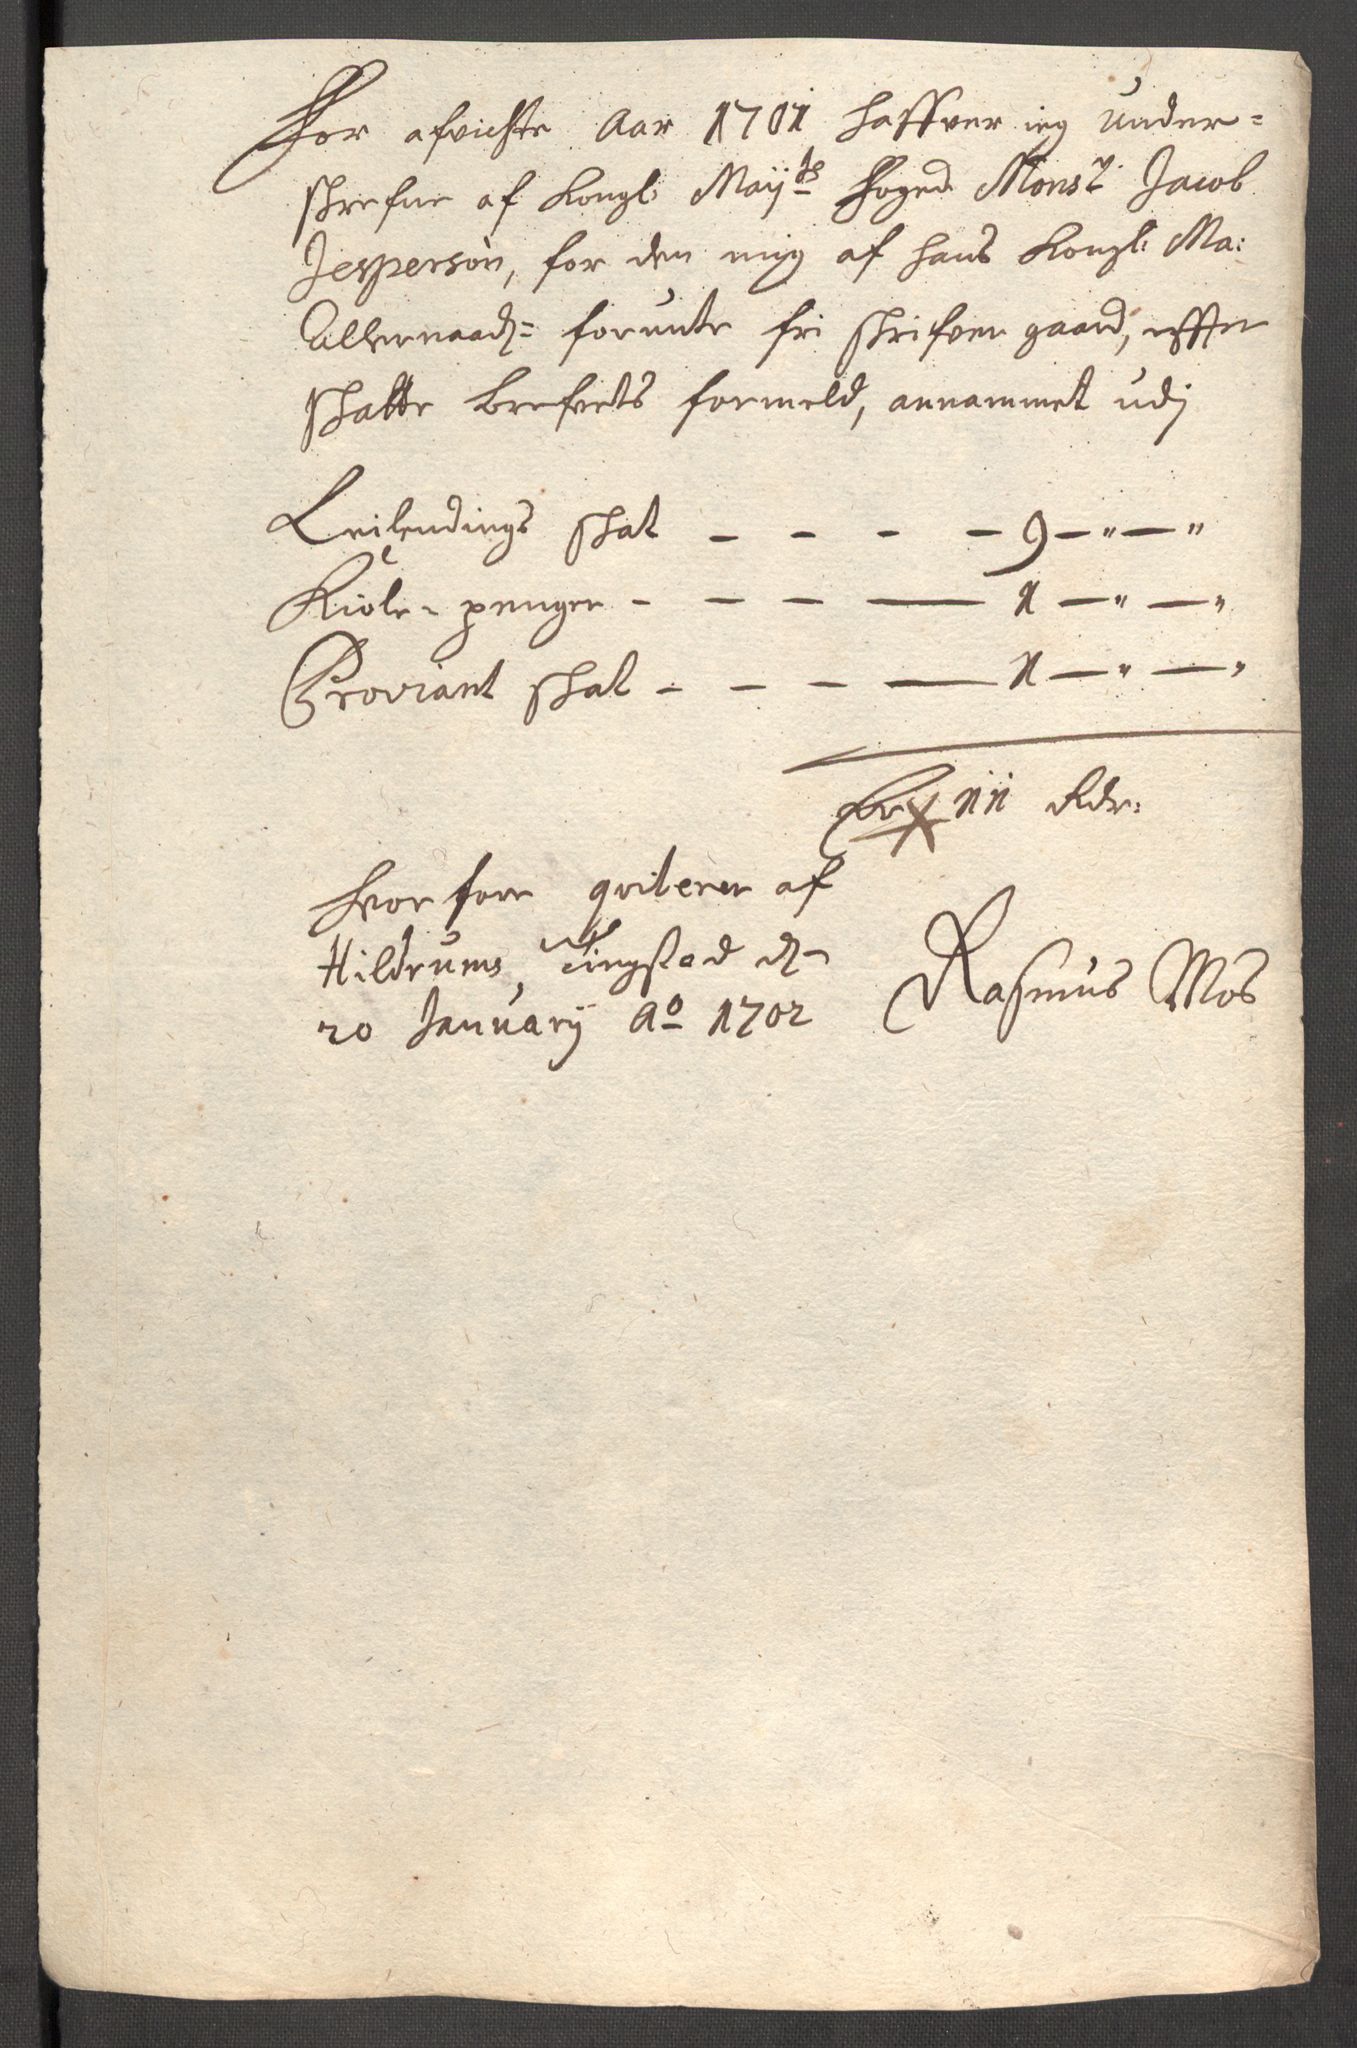 For afvichte Aar 1701 haffver ieg under-
schrefne af Kongl: Maÿts foged Monsr. Jacob
Jesperson, for den mig af hans Kongl: Ma:
Allernaad:= forunte fri schrifver gaard, effter
schatte brefvets formeld, annammet udj
Leilendings schat - - - - 9 - " - "
Kiole-penger - - - - 1 - " - "
Proviant schat - - - - 1 - " - "
11 Rdr:
hvorfore qviterer af
Hildrums Tingsted d=
20 Januarÿ Ao 1702
Rasmus Mos